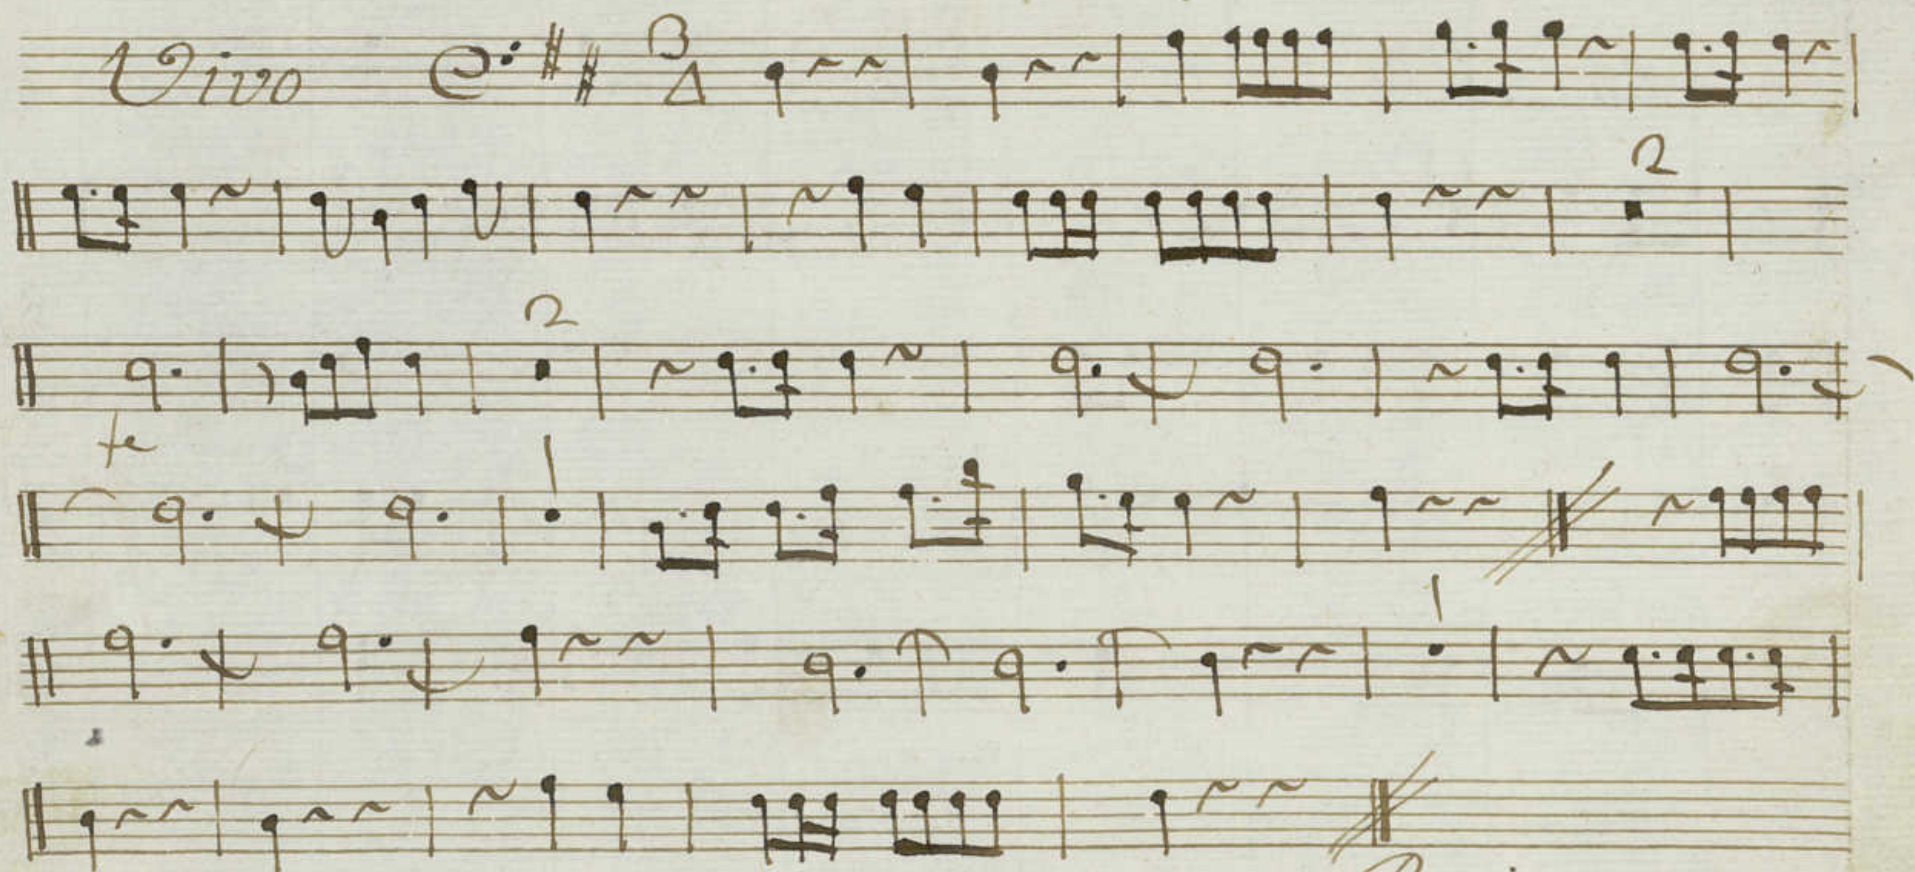 Vivo 3
4
2
2
fe
1
1